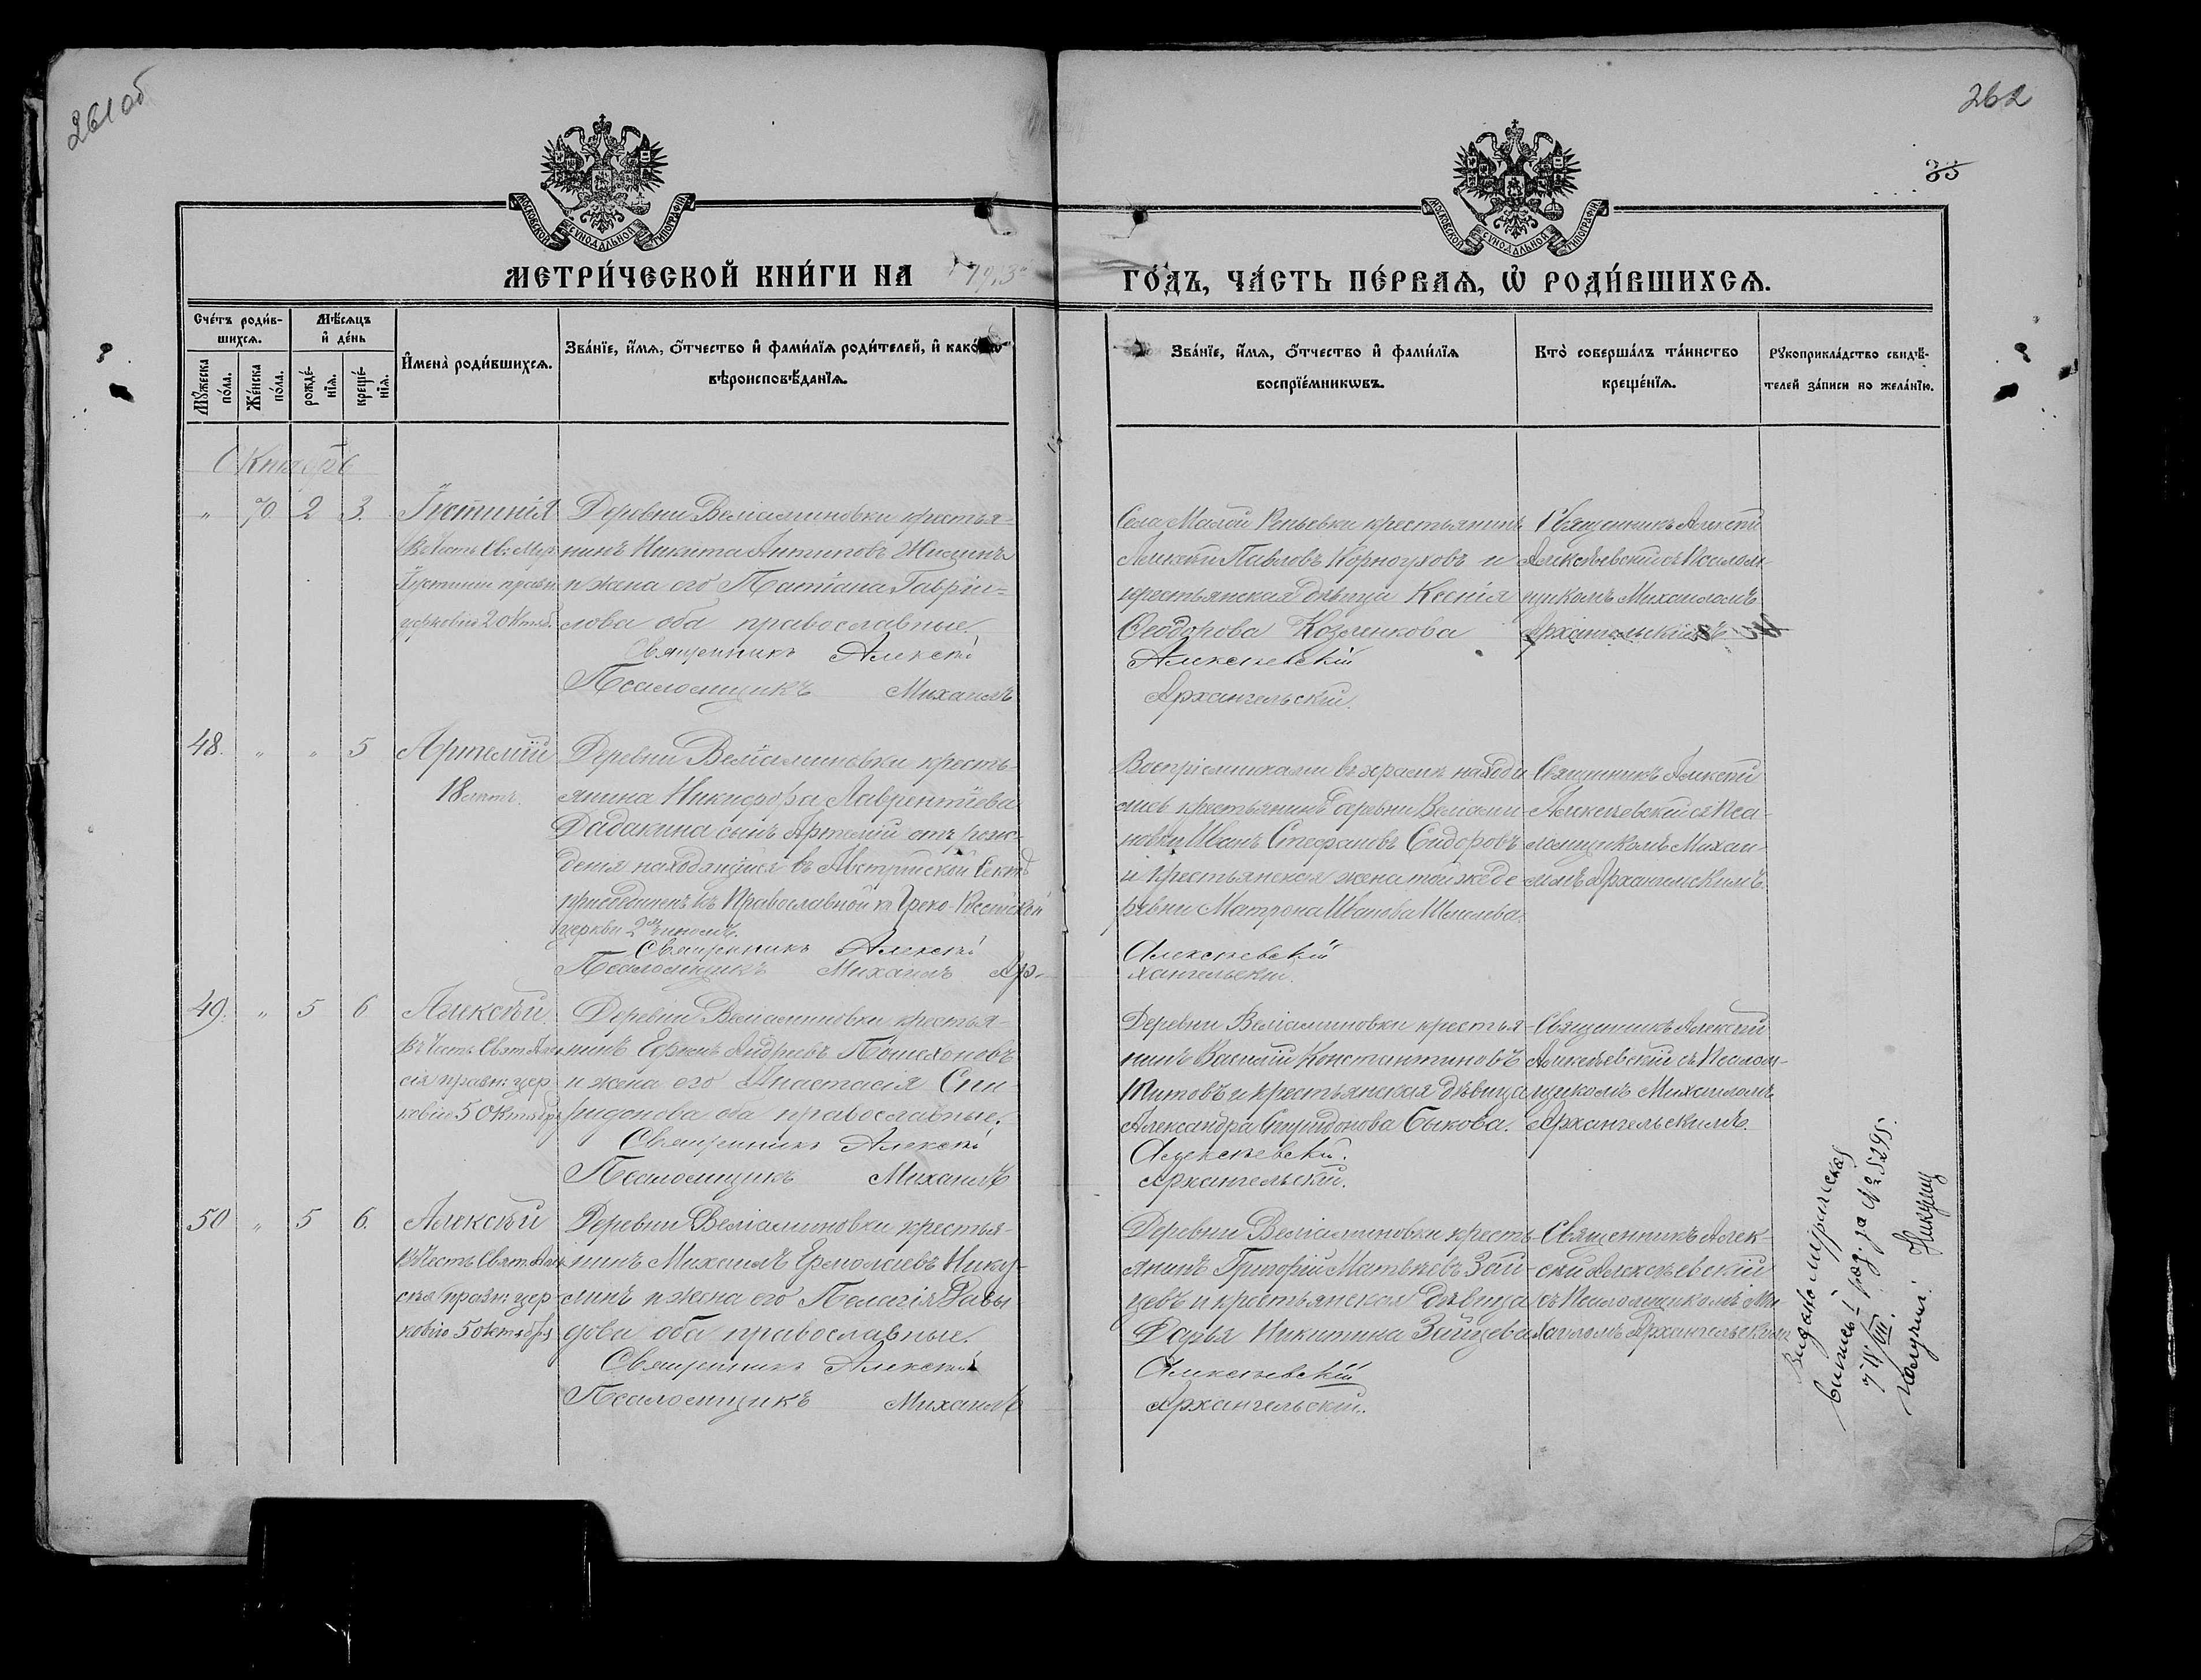 261 об
262
33
МОСКОВСКОЙ СѴНОДАЛЬНОЙ ТИПОГРАФІИ
МОСКОВСКОЙ СѴНОДАЛЬНОЙ ТИПОГРАФІИ
МЕТРИ́ЧЕСКОЙ КНИ́ГИ НА 1913 ГО́ДЪ, ЧА́СТЬ ПЕ́РВАѦ, Ѡ҆ РОДИ́ВШИХСѦ.
Сче́тъ роди́в-
шихсѧ.
Мꙋ́жеска по́ла.
Же́нска по́ла.
Мѣ́сѧцъ
и҆ де́нь
рожде́-
нїѧ.
креще́-
нїѧ.
И҆мена̀ роди́вшихсѧ.
Зва́нїе, и҆́мѧ, ѻ҆́тчество и҆ фами́лїѧ роди́телей, и҆ како́гѡ
вѣроисповѣ́данїѧ.
Зва́нїе, и҆́мѧ, ѻ҆́тчество и҆ фами́лїѧ
воспрїе́мникѡвъ.
Кто̀ соверша́лъ та́инство
креще́нїѧ.
Рꙋкоприкла́дство свидѣ́-
телей за́писи по жела́нїю.
Октябрь
" 70. 2 3. Іустинія
Въ честь Св: Муч.
Іустини празн.
церковію 2 Октяб.
Деревни Веліаминовки крестья-
нинъ Никита Антиповъ
и жена его Татіана Гаврі-
лова оба православные.
Священникъ Алексѣй
Псаломщикъ Михаилъ
Села Малой Репьевки крестьянинъ
Алексѣй Павловъ Корноуховъ и
крестьянская дѣвица Ксенія
Ѳеодорова Козленкова
Алексѣевскій
Архангельскій.
Священникъ Алексѣй
Алексѣевскій съ Псалом-
щикомъ Михаиломъ
Архангельскимъ
48. " " 5 Артемій
18 лѣтъ.
Деревни Веліаминовки кресть-
янина Никифора Лаврентіева
Дадакина сынъ Артемій отъ рож-
денія находящійся въ Австрійской сектѣ
присоединенъ къ Православной Греко-Россійской
церкви 2мъ чиномъ.
Священникъ Алексѣй
Псаломщикъ Михаилъ Ар-
Воспріемниками въ храмѣ находи-
лись крестьянинъ деревни Веліами-
новки Иванъ Стефановъ Сидоровъ
и крестьянская жена той же де-
ревни Матрона Иванова
Алексѣевскій
хангельскій.
Священникъ Алексѣй
Алексѣевскій съ Пса-
ломщикомъ Михаи-
ломъ Архангельскимъ.
49. " 5 6 Алексѣй.
Въ честь Свят. Алек
сія празн: цер
ковію 5 Октября
Деревни Веліаминовки крестья-
нинъ Ефимъ Андреевъ Пошехоновъ
и жена его Анастасія Спи-
ридонова оба православные.
Священникъ Алексѣй
Псаломщикъ Михаилъ
Деревни Веліаминовки крестья-
нинъ Василій Константиновъ
Титовъ и крестьянская дѣвица
Александра Спиридонова Быкова.
Алексѣевскій.
Архангельскій.
Священникъ Алексѣй
Алексѣевскій съ Псалом-
щикомъ Михаиломъ
Архангельскимъ.
50 " 5 6. Алексѣй
Въ честь Свят. Алек
сѣя празн: цер
ковію 5 Октября
Деревни Веліаминовки крестья-
нинъ Михаилъ Ермолаевъ Нику-
линъ и жена его Пелагія Давы-
дова оба православные.
Священникъ Алексѣй
Псаломщикъ Михаилъ
Деревни Веліаминовки кресть-
янинъ Григорій Матвѣевъ Зай-
цевъ и крестьянская дѣвица
Дарья Никитина Зайцева
Алексѣевскій
Архангельскій.
Священникъ Алек-
сѣй Алексѣевскій
съ Псаломщикомъ Ми-
хаиломъ Архангельскимъ
Выдана метрическая
выпись за № 5295.
Получил: Никулин